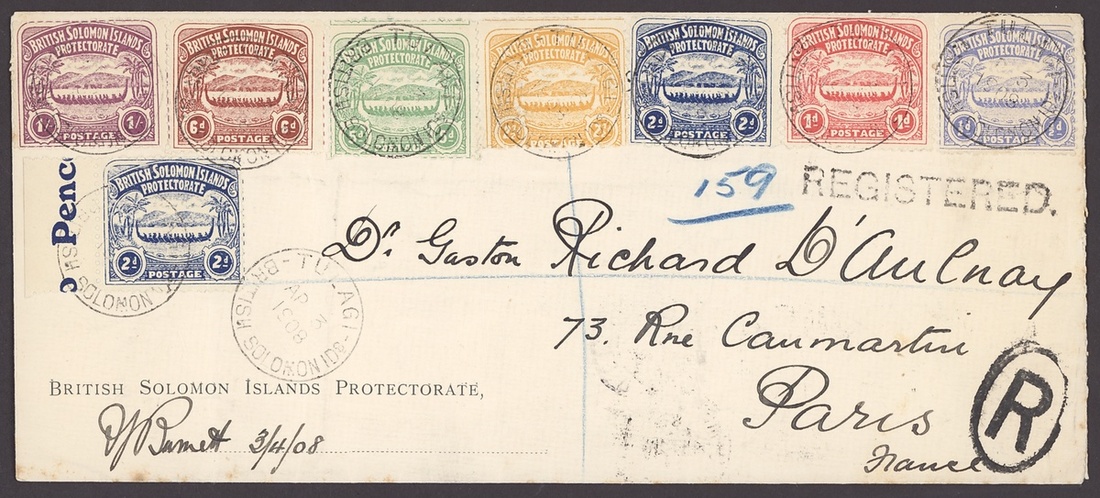 BRITISH SOLOMON ISLANDS
PROTECTORATE
1/- 1/-
POSTAGE
BRITISH SOLOMON ISLANDS
PROTECTORATE
6d 6d
POSTAGE
BRITISH SOLOMON ISLANDS
PROTECTORATE
POSTAGE
BRITISH SOLOMON ISLANDS
PROTECTORATE
POSTAGE
BRITISH SOLOMON ISLANDS
PROTECTORATE
2d 2d
POSTAGE
BRITISH SOLOMON ISLANDS
PROTECTORATE
1d 1d
POSTAGE
BRITISH SOLOMON ISLANDS
PROTECTORATE
POSTAGE
Pence
BRITISH SOLOMON ISLANDS
PROTECTORATE
2d 2d
POSTAGE
159
REGISTERED.
Dr Gaston Richard D'Aulnay
73. Rue Caumartin
Paris
France
R
TULAGI-BRITISH SOLOMON IDS
AP 3
BRITISH SOLOMON ISLANDS PROTECTORATE,
Burnett 3/4/08